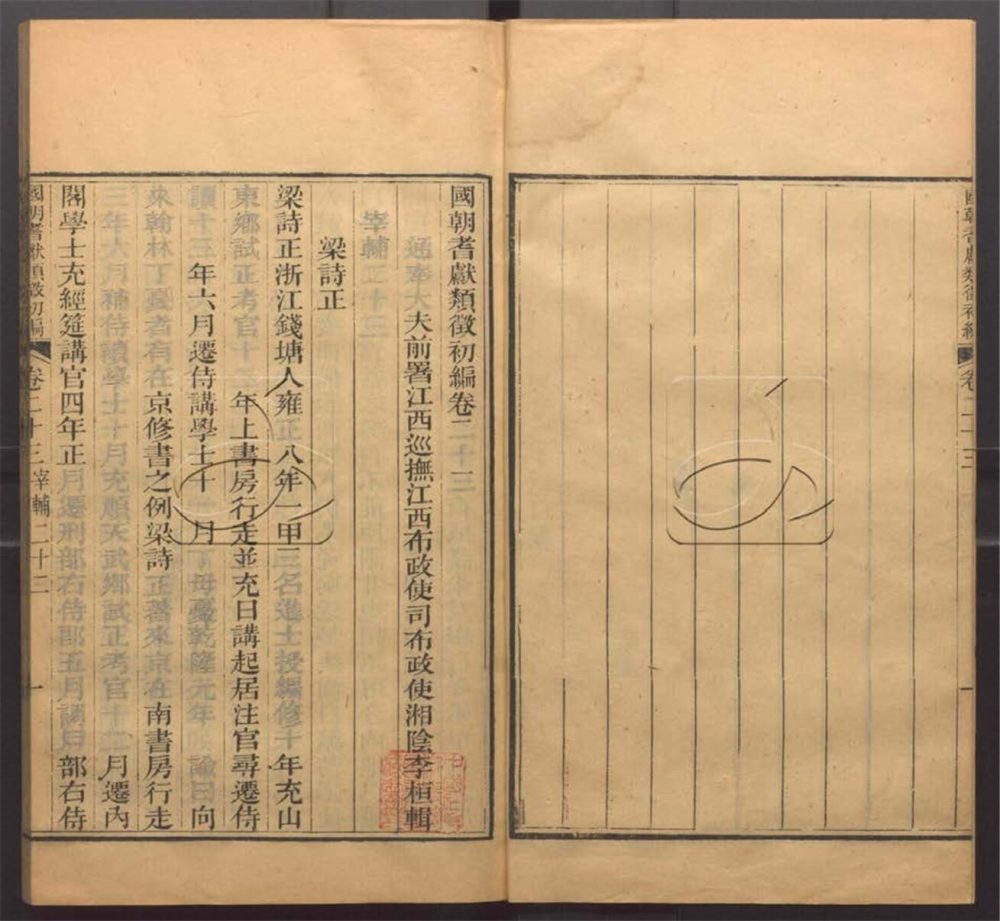 國朝耆獻類徵初編卷二十三
國朝耆獻類徵初編卷二十三
通奉大夫前署江西巡撫江西布政使司布政使湘陰李桓輯
宰輔二十三
梁詩正
梁詩正浙江錢塘人雍正八年一甲三名進士授編修十年充山
東鄉試正考官十二年上書房行走並充日講起居注官尋遷侍
讀十三年六月遷侍講學士十月丁母憂乾隆元年諭曰向
來翰林丁憂者有在京修書之例梁詩正著來京在南書房行走
三年八月補侍讀學士十月充順天武鄉試正考官十二月遷內
閣學士充經筵講官四年正月遷刑部右侍郎五月調戶部右侍
國朝耆獻類徵初編 卷二十三 宰輔二十三 一